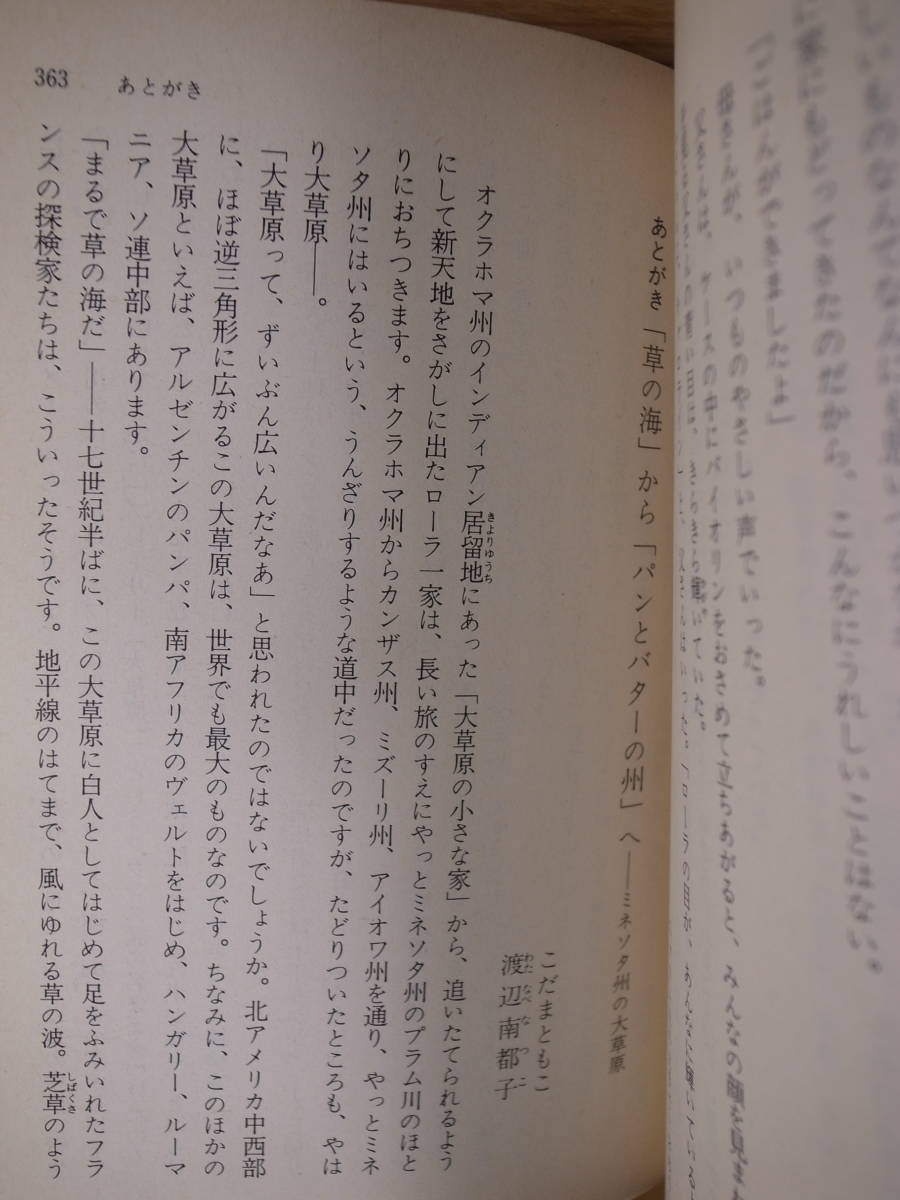 しいものなんてなんに
に家にもどってきたのだから、こんなにうれしいことはない。
「ごはんができましたよ」
母さんが、いつものやさしい声でいった。
父さんは、ケースの中にバイオリンをおさめて立ちあがると、みんなの顔を見ま
の青い目は、きらきら輝いていた。
363 あとがき
あとがき「草の海」から「パンとバターの州」へ——ミネソタ州の大草原
こだまともこ
渡辺南都子
わたなべなつこ
オクラホマ州のインディアン居留地にあった「大草原の小さな家」から、追いたてられるよう
きよりゆうち
にして新天地をさがしに出たローラ一家は、長い旅のすえにやっとミネソタ州のプラム川のほと
りにおちつきます。オクラホマ州からカンザス州、ミズーリ州、アイオワ州を通り、やっとミネ
ソタ州にはいるという、うんざりするような道中だったのですが、たどりついたところも、やは
り大草原——。
「大草原って、ずいぶん広いんだなあ」と思われたのではないでしょうか。北アメリカ中西部
に、ほぼ逆三角形に広がるこの大草原は、世界でも最大のものなのです。ちなみに、このほかの
大草原といえば、アルゼンチンのパンパ、南アフリカのヴェルトをはじめ、ハンガリー、ルーマ
ニア、ソ連中部にあります。
「まるで草の海だ」——十七世紀半ばに、この大草原に白人としてはじめて足をふみいれたフラ
ンスの探検家たちは、こういったそうです。地平線のはてまで、風にゆれる草の波。芝草のよう
しばくさ